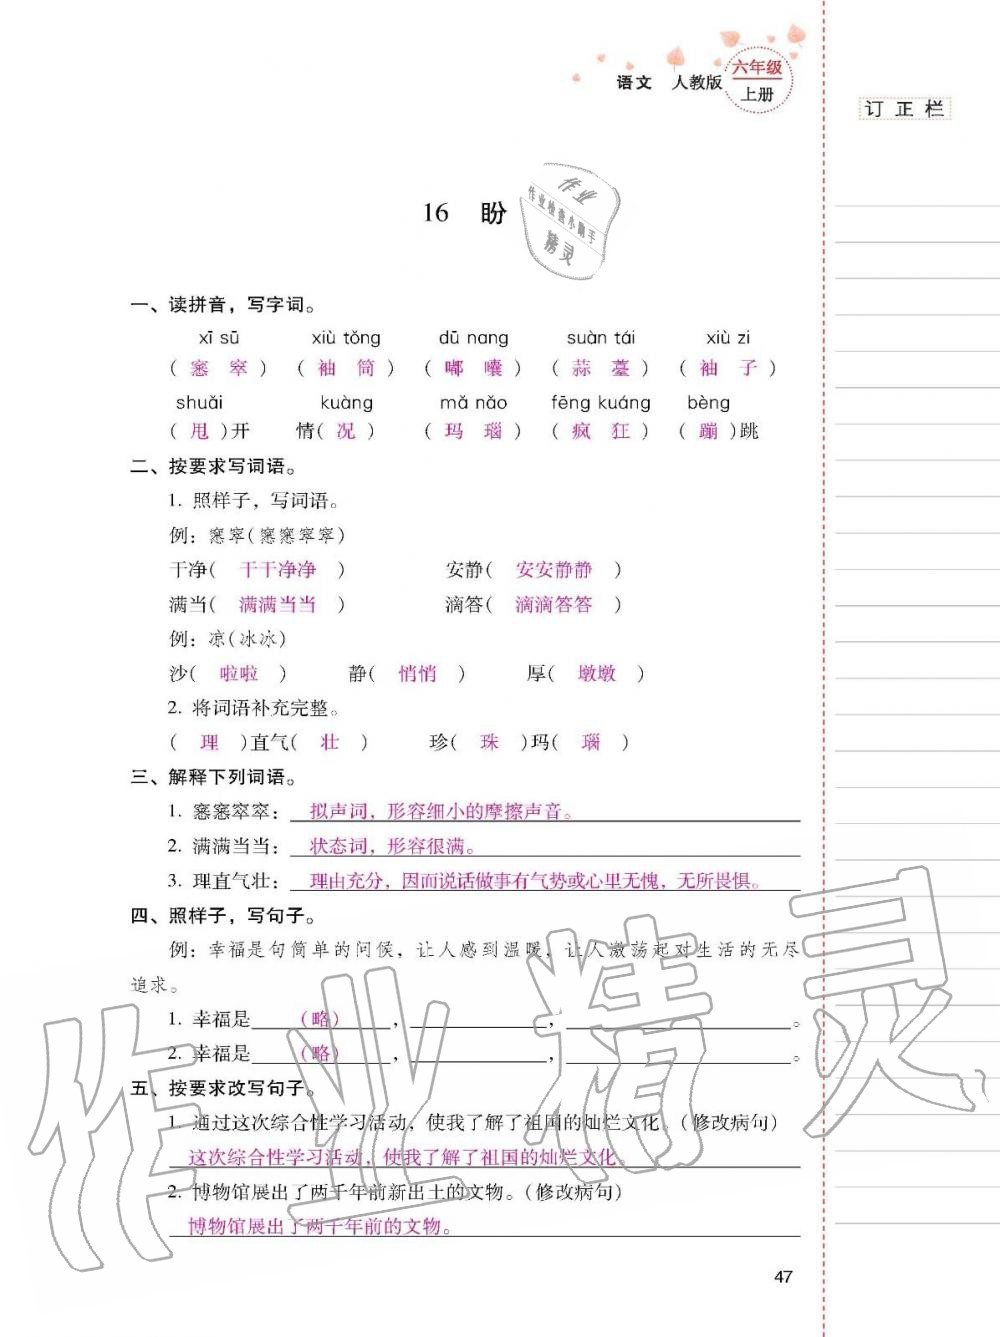 语文 人教版 六年级
上册
订正栏
16 盼
作业
作业检查小助手
精灵
一、读拼音，写字词。
xī sū xiù tǒng dū nang suàn tái xiù zi
( 窸 窣 ) ( 袖 筒 ) ( 嘟 囔 ) ( 蒜 薹 ) ( 袖 子 )
shuǎi kuàng mǎ nǎo fēng kuáng bèng
( 甩 )开 情( 况 ) ( 玛 瑙 ) ( 疯 狂 ) ( 蹦 )跳
二、按要求写词语。
1. 照样子，写词语。
例：窸窣(窸窸窣窣)
干净( 干干净净 ) 安静( 安安静静 )
满当( 满满当当 ) 滴答( 滴滴答答 )
例：凉(冰冰)
沙( 啦啦 ) 静( 悄悄 ) 厚( 墩墩 )
2. 将词语补充完整。
( 理 )直气( 壮 ) 珍( 珠 )玛( 瑙 )
三、解释下列词语。
1. 窸窸窣窣：拟声词，形容细小的摩擦声音。
2. 满满当当：状态词，形容很满。
3. 理直气壮：理由充分，因而说话做事有气势或心里无愧，无所畏惧。
四、照样子，写句子。
例：幸福是句简单的问候，让人感到温暖，让人激荡起对生活的无尽
追求。
1. 幸福是 (略) ， ， 。
2. 幸福是 (略) ， ， 。
五、按要求改写句子。
1. 通过这次综合性学习活动，使我了解了祖国的灿烂文化。(修改病句)
这次综合性学习活动，使我了解了祖国的灿烂文化。
2. 博物馆展出了两千年前新出土的文物。(修改病句)
博物馆展出了两千年前的文物。
作业精灵
47